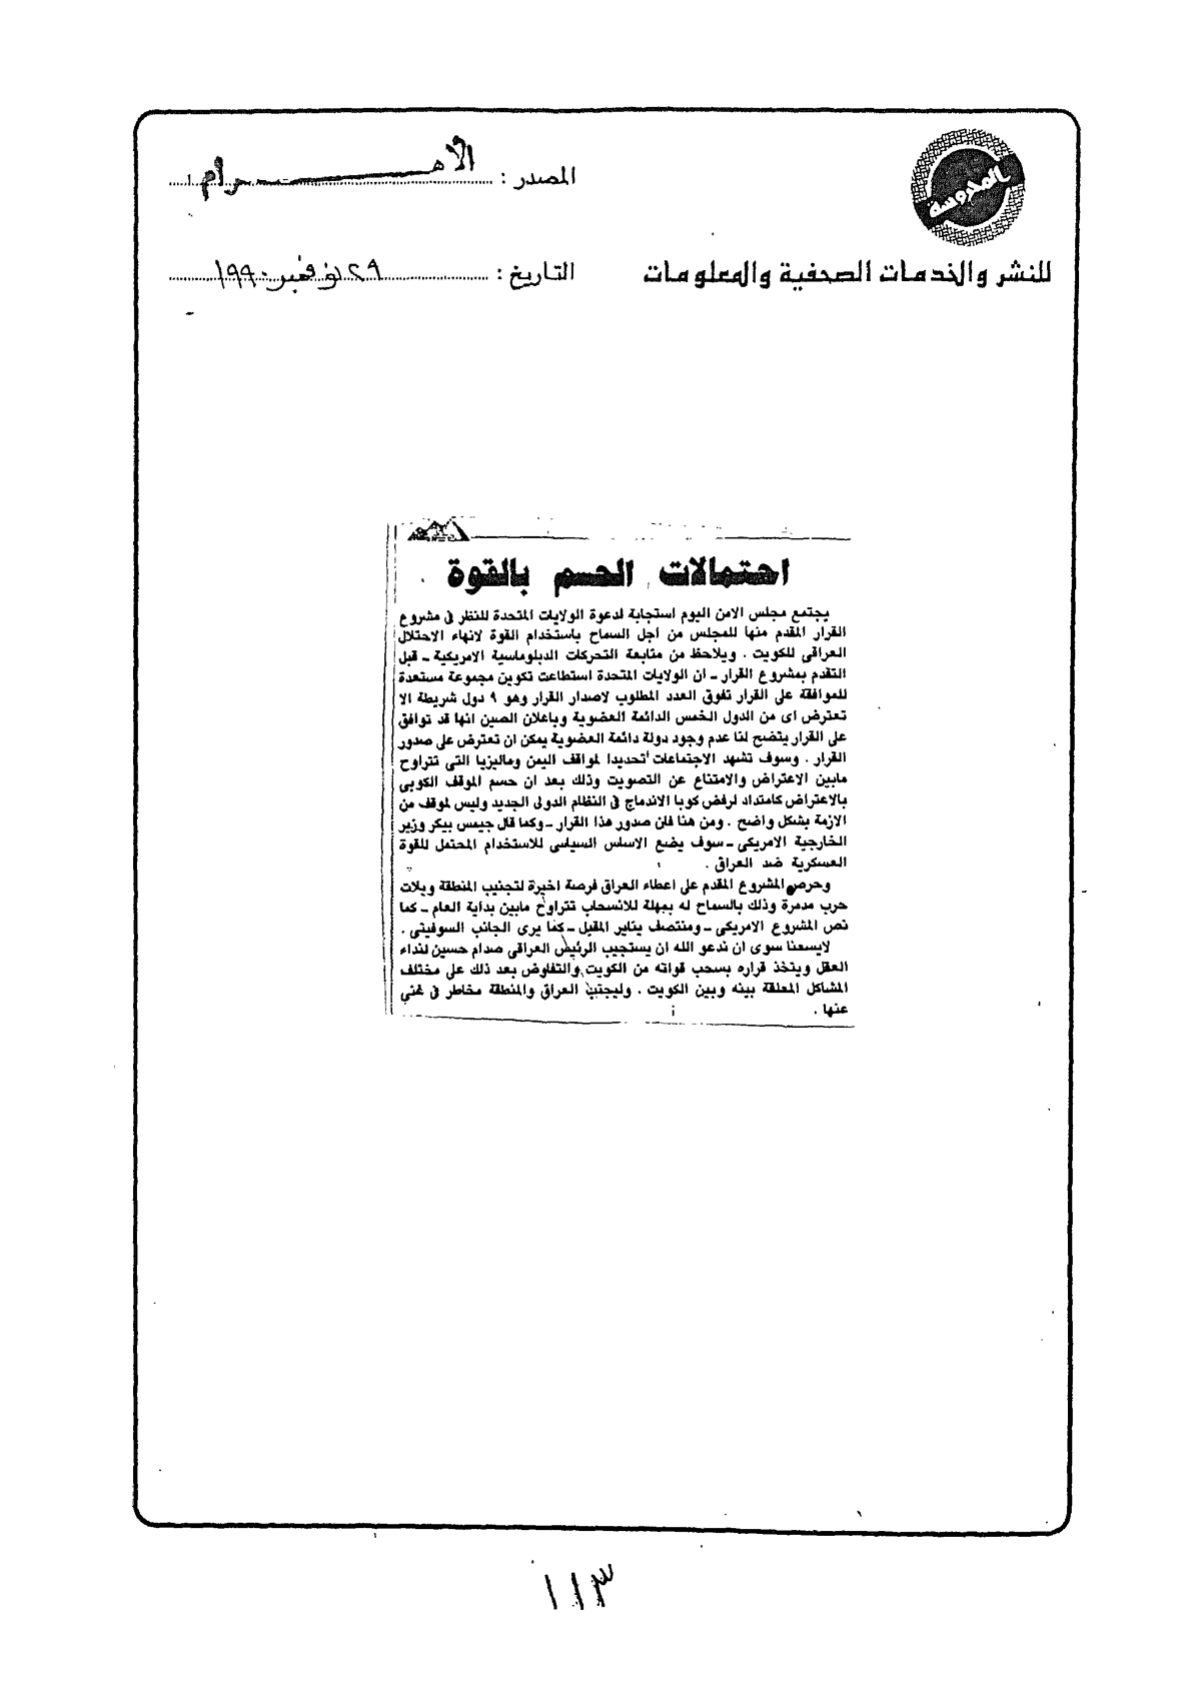 المحروسة
للنشر والخدمات الصحفية والمعلومات
المصدر : الاهرام
التاريخ : ٢٩ نوفمبر ١٩٩٠
احتمالات الحسم بالقوة
يجتمع مجلس الامن اليوم استجابة لدعوة الولايات المتحدة للنظر فى مشروع
القرار المقدم منها للمجلس من اجل السماح باستخدام القوة لانهاء الاحتلال
العراقى للكويت . ويلاحظ من متابعة التحركات الدبلوماسية الامريكية ـ قبل
التقدم بمشروع القرار ـ ان الولايات المتحدة استطاعت تكوين مجموعة مستعدة
للموافقة على القرار تفوق العدد المطلوب لاصدار القرار وهو ٩ دول شريطة الا
تعترض اى من الدول الخمس الدائمة العضوية وباعلان الصين انها قد توافق
على القرار يتضح لنا عدم وجود دولة دائمة العضوية يمكن ان تعترض على صدور
القرار . وسوف تشهد الاجتماعات تحديدا لمواقف اليمن وماليزيا التى تتراوح
مابين الاعتراض والامتناع عن التصويت وذلك بعد ان حسم الموقف الكوبى
بالاعتراض كامتداد لرفض كوبا الاندماج فى النظام الدولى الجديد وليس لموقف من
الازمة بشكل واضح . ومن هنا فان صدور هذا القرار ـ وكما قال جيمس بيكر وزير
الخارجية الامريكى ـ سوف يضع الاساس السياسى للاستخدام المحتمل للقوة
العسكرية ضد العراق .
وحرص المشروع المقدم على اعطاء العراق فرصة اخيرة لتجنيب المنطقة ويلات
حرب مدمرة وذلك بالسماح له بمهلة للانسحاب تتراوح مابين بداية العام ـ كما
نص المشروع الامريكى ـ ومنتصف يناير المقبل ـ كما يرى الجانب السوفيتى .
لايسعنا سوى ان ندعو الله ان يستجيب الرئيس العراقى صدام حسين لنداء
العقل ويتخذ قراره بسحب قواته من الكويت والتفاوض بعد ذلك على مختلف
المشاكل المعلقة بينه وبين الكويت . وليجنب العراق والمنطقة مخاطر فى غنى
عنها .
١١٣